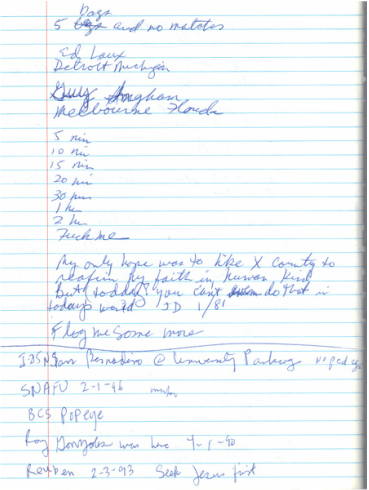 Days
5 and no matches
Ed Laux
Detroit Michigan
Guy Langham
Melbourne Florida
5 min
10 min
15 min
20 min
30 min
1 hr
2 hr
Fuck me
My only hope was to hike X County to
reafirm my faith in human kind
But today you can't even do that in
todays world JD 1/81
Flog me some more
San Bernadino @ University Parkway no ped
SNAFU 2-1-46
BCS POPeye
Roy Gonzales was here 4-1-90
Reuben 2-3-93 Seek Jesus first